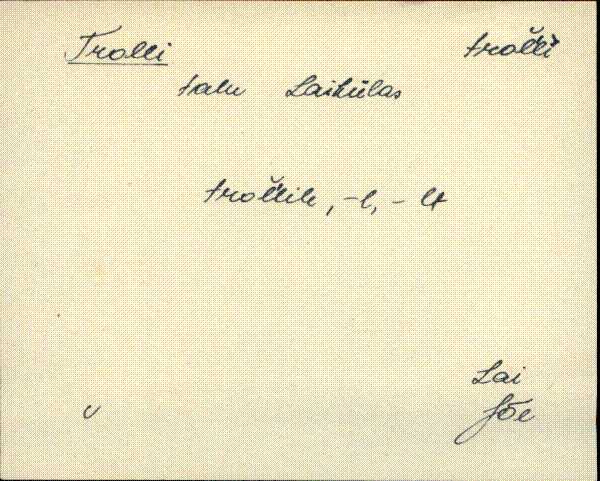 Trolli trol̆l̆i
talu Laikülas
trol̆l̆ile, -l, -lt
Lai
Jõe
v